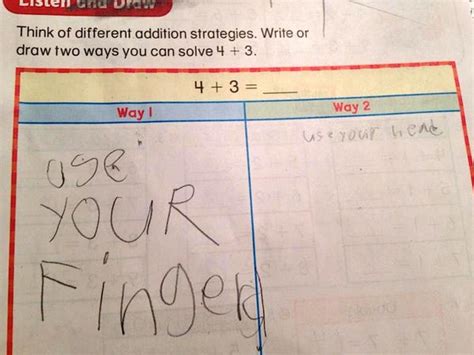 Listen and Draw
Think of different addition strategies. Write or
draw two ways you can solve 4 + 3.
4 + 3 = ____
Way 1
Way 2
use
YOUR
Fingers
use your head